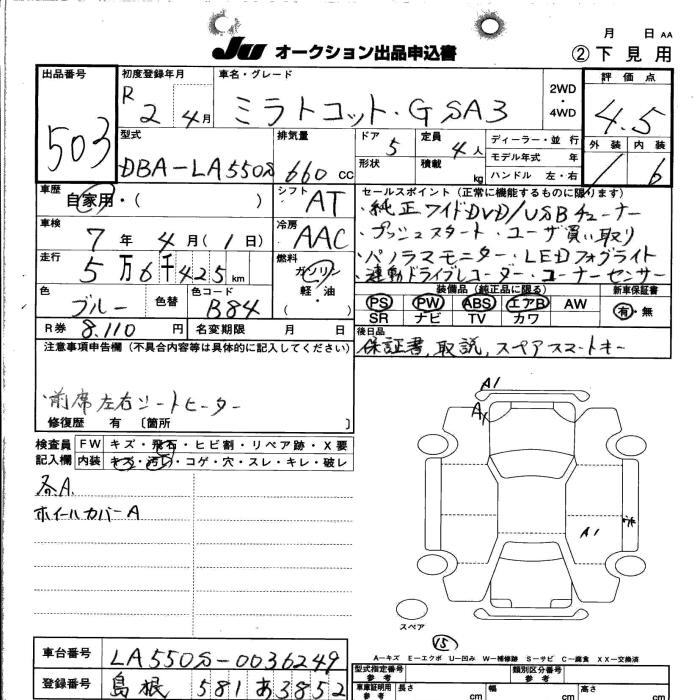 月 日 AA
JU オークション出品申込書 ②下見用
出品番号 503
初度登録年月 R 2 4月
車名・グレード ミラトコット・G SA3
2WD・4WD
評価点 4.5
外装 内装 6
型式 DBA-LA550S
排気量 660 CC
ドア 5 定員 4人
形状 積載 kg
ディーラー・並行
モデル年式 年
ハンドル 左・右
車歴 自家用・( )
シフト AT
車検 7年 4月 (1日)
冷房 AAC
走行 5万6千425km
燃料 ガソリン 軽・油 ( )
色 ブルー 色替 色コード B84
R券 8,110円 名変期限 月 日
セールスポイント(正常に機能するものに限ります)
・純正ワイドDVD/USBチューナー
・プッシュスタート・ユーザ買い取り
・パノラマモニター・LEDフォグライト
・連動ドライブレコーダー・コーナーセンサー
装備品(純正品に限る) 新車保証書
PS PW ABS エアB AW 有・無
SR ナビ TV カワ
後日品
保証書,取説,スペアスマートキー
注意事項申告欄(不具合内容等は具体的に記入してください)
・前席左右シートヒーター
修復歴 有 〔箇所 〕
検査員記入欄
FW キズ・飛石・ヒビ割・リペア跡・X要
内装 キズ・汚レ・コゲ・穴・スレ・キレ・破レ
各A.
ホイールカバーA
A1
A1
スペア
15
A…キズ E…エクボ U…凹み W…補修跡 S…サビ C…腐食 XX…交換済
車台番号 LA550S-0036249
登録番号 島根 581 あ3852
型式指定番号 参考
類別区分番号 参考
車庫証明用 参考 長さ cm 幅 cm 高さ cm